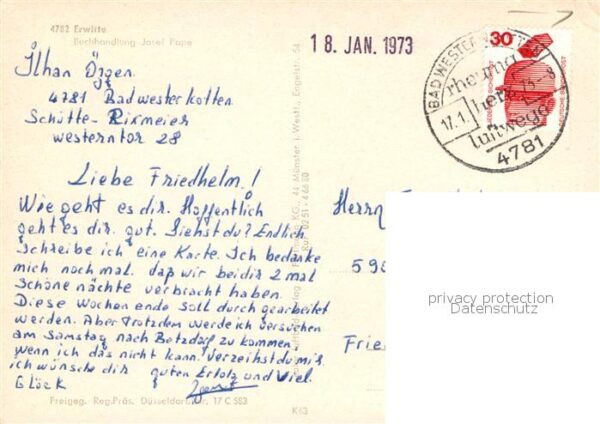 4782 Erwitte
Buchhandlung Josef Pape
18. JAN. 1973
30
BAD WESTERNKOTTEN
rheuma
herz
luftwege
17.1.73-8
4781
DEUTSCHE BUNDESPOST
Ilhan Özgen
4781 Bad westerkotten
Schütte-Rixmeier
westerntor 28
Liebe Friedhelm!
Wie geht es dir. Hoffentlich
geht es dir gut. Siehst du? Endlich
Schreibe ich eine Karte. Ich bedanke
mich noch mal. daß wir beidir 2 mal
Schöne nächte verbracht haben.
Diese Wochen ende soll durchgearbeitet
werden. Aber Trotzdem werde ich versuchen
am Samstag nach Betzdorf zu kommen
wenn ich das nicht kann. Verzeihst du mir.
ich wünsche dir guten Erfolg und Viel.
Glöck
Herrn
590
Frie
privacy protection
Datenschutz
44 Münster i. Westf., Engelstr. 54
Ruf 02 51 - 4 66 80
Freigeg. Reg.Präs. Düsseldorf 17 C 583
K63